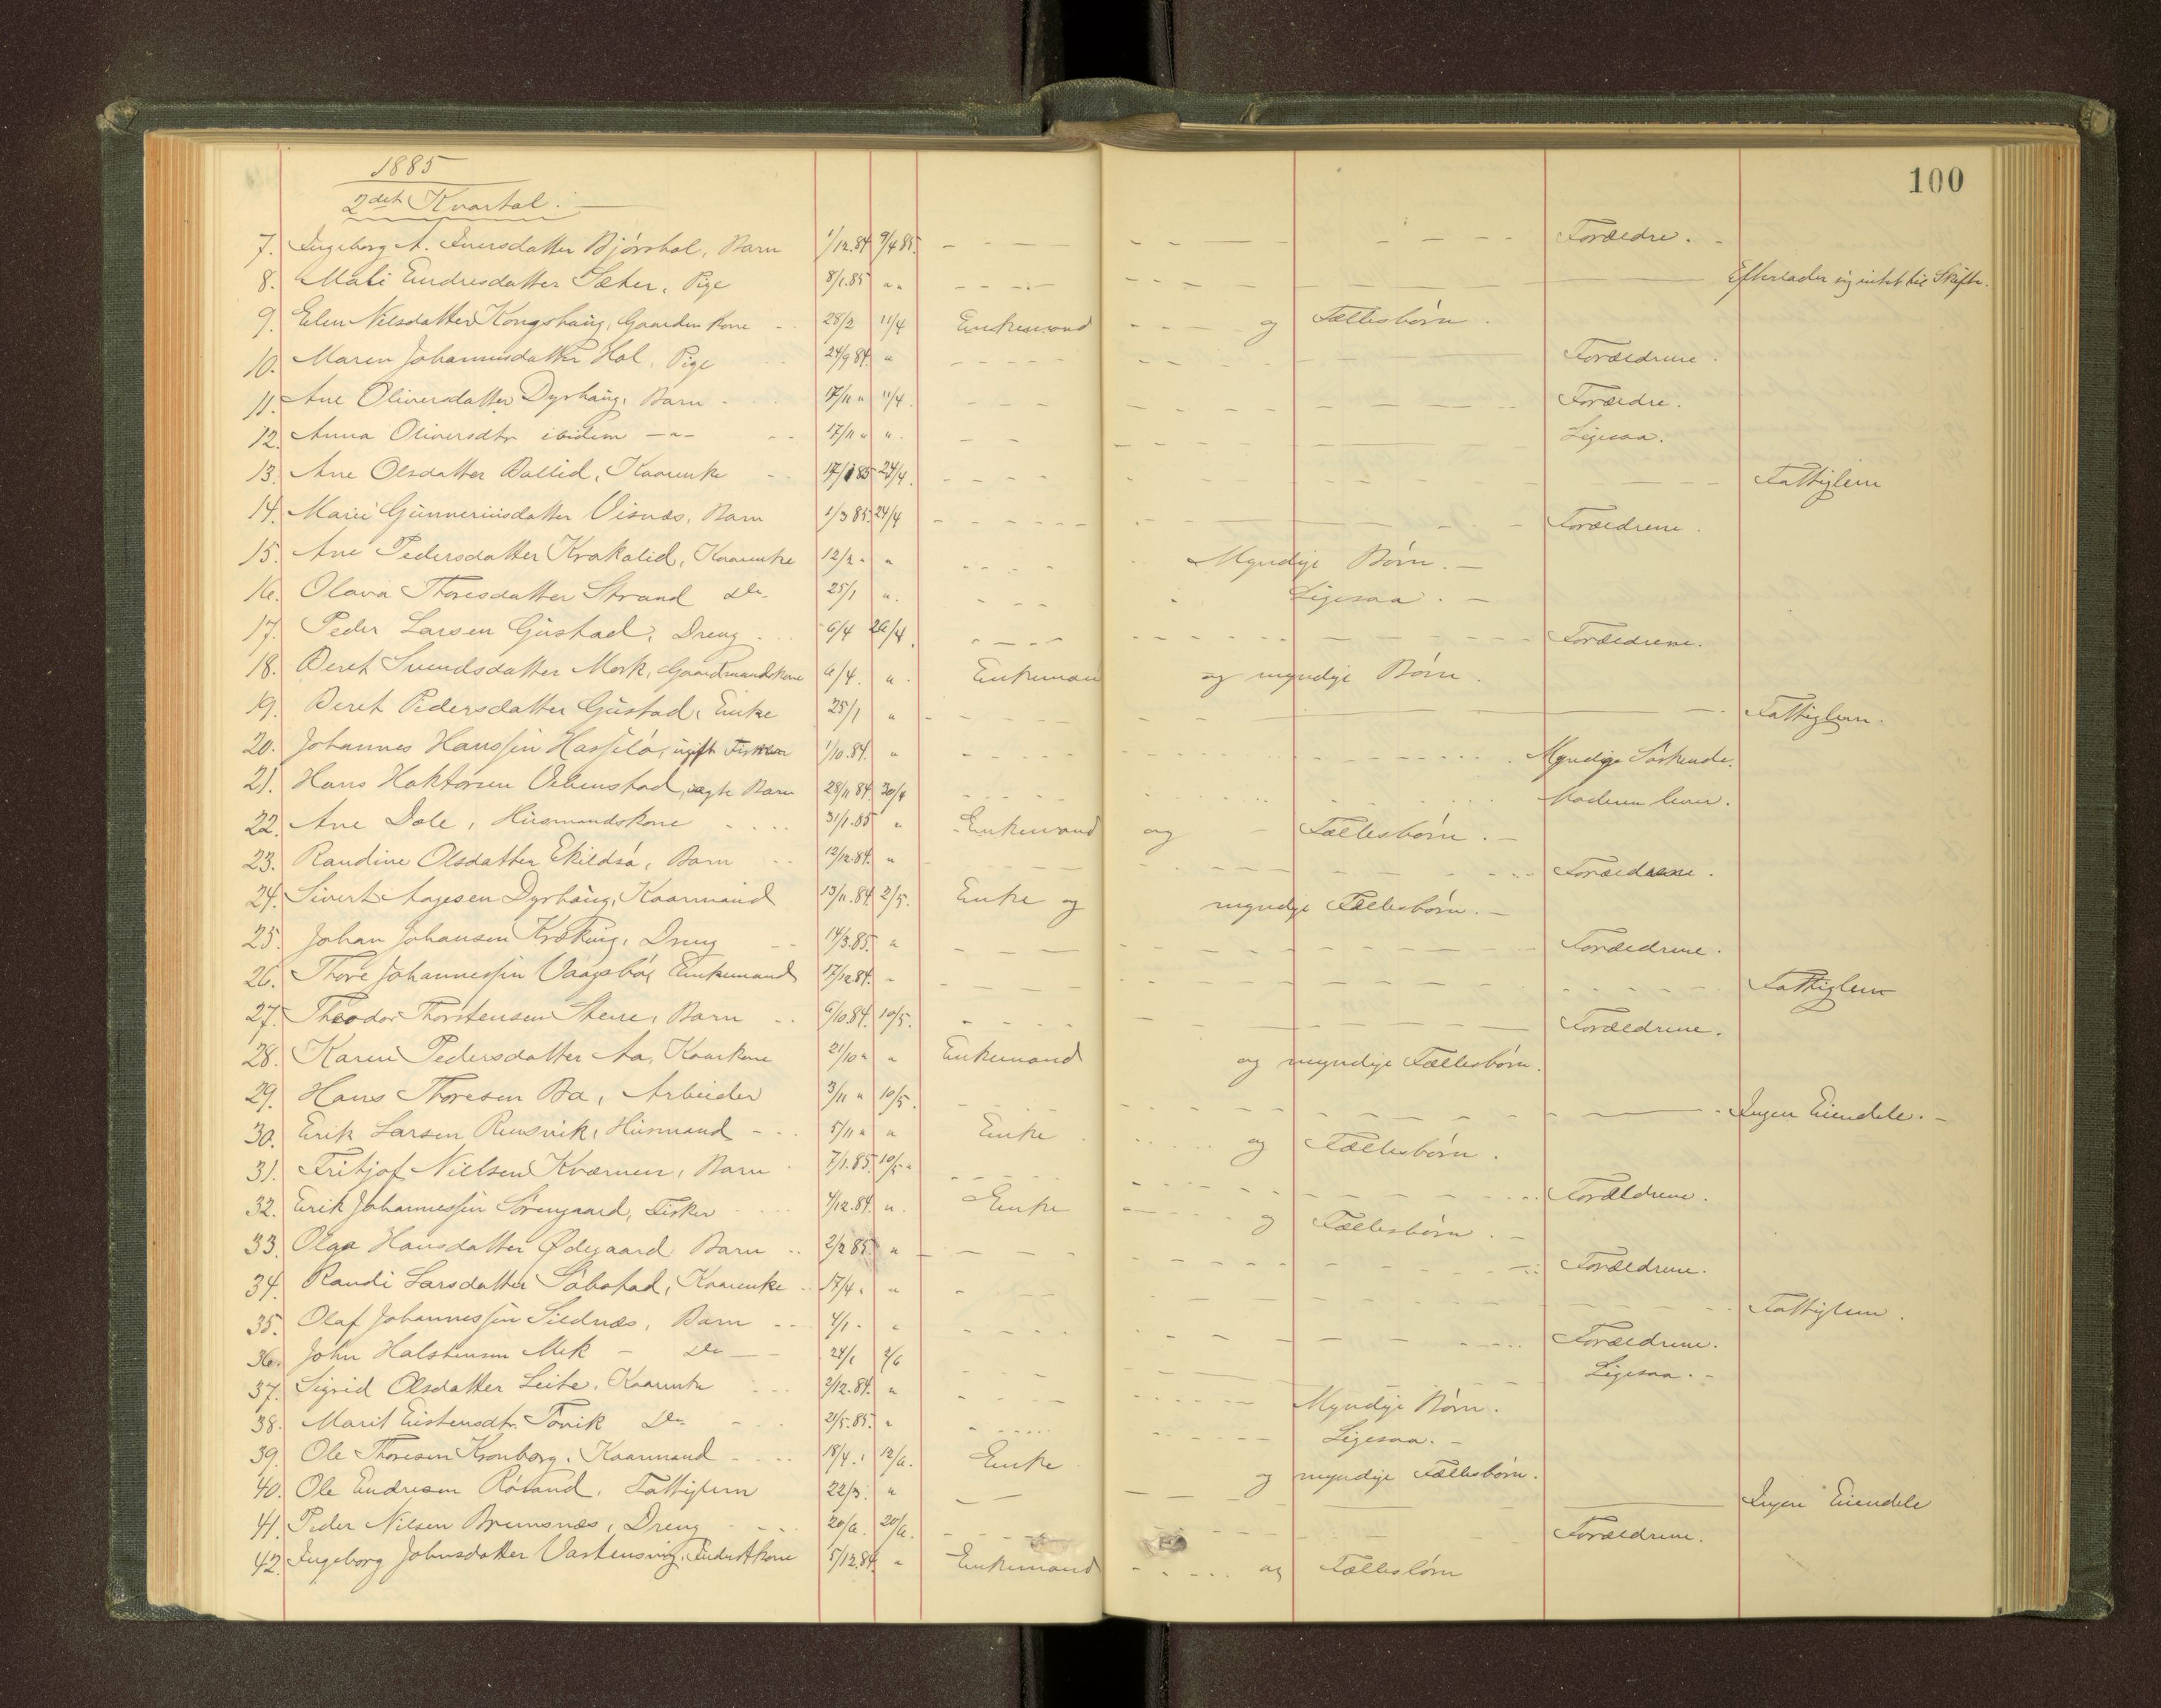 1885
100
2det Kvartal.
7. Ingeborg A. Iversdatter Bjórshol, Barn 1/12.84 9/4 85. Forældre.
8. Mali Endresdatter Sæter, Pige 8/1.85 " Efterlader sig intet til Skifte.
9. Elen Nilsdatter Kongshaug, Gaardm kone 28/2 11/4 Enkemand og Fællesbórn.
10. Maren Johannesdatter Hol, Pige 24/9 84. " Forældrene.
11. Ane Oliversdatter Dyrhaug, Barn 17/11 " 11/4. Forældre.
12. Anna Oliversdtr ibidem —"— 17/11 " ". Ligesaa.
13. Ane Olsdatter Dallid, Kaarenke 17/1 85 24/4. Fattiglem
14. Marie Gunneriusdatter Visnæs, Barn 1/3 85. 24/4 Forældrene.
15. Ane Pedersdatter Krakalid, Kaarenke 12/2 " " Myndige Bórn.
16. Olava Thoresdatter Strand Do. 25/1 ". Ligesaa.
17. Peder Larsen Gustad, Dreng 6/4 26/4. Forældrene.
18. Beret Svendsdatter Mork, Gaardmandskone 6/4. ". Enkeman og myndige Bórn.
19. Beret Pedersdatter Gustad, Enke 25/1 " Fattiglem.
20. Johannes Hanssen Hasseló, ugift Fisker 1/10.84. " Myndige Sóskende.
21. Hans Haktorsen Vebenstad, uægte Barn 28/11 84. 30/4 Moderen lever.
22. Ane Dole, Husmandskone 31/1.85 " Enkemand og Fællesbórn.
23. Randine Olsdatter Ekildsó, Barn 12/12.84. " Forældrene.
24. Sivert Aagesen Dyrhaug, Kaarmand 13/11.84. 2/5. Enke og myndige Fællesbórn.
25. Johan Johansen Krøking, Dreng 14/3.85. " Forældrene.
26. Thore Johannessen Vaagsbó, Enkemand 17/12 84. " Fattiglem
27. Theodor Thorstensen Stene, Barn 6/10.84. 10/5. Forældrene.
28. Karen Pedersdatter Aa, Kaarkone 21/10 " " Enkemand og myndige Fællesbórn.
29. Hans Thoresen Bø, Arbeider 3/11 " 10/5. Ingen Eiendele.
30. Erik Larsen Rensvik, Husmand 5/11 " " Enke og Fællesbórn.
31. Fritjof Nielsen Kværnen, Barn 7/1.85. 10/5 " Forældrene.
32. Erik Johannessen Sórengaard, Fisker 4/12.84. ". Enke og Fællesbórn.
33. Olga Hansdatter Ødegaard Barn 2/2 85. " Forældrene.
34. Randi Larsdatter Sóbstad, Kaarenke 17/4 " " Fattiglem.
35. Olaf Johannessen Sildnæs, Barn 4/1 " " Forældrene.
36. John Halstensen Mek Do 24/1 2/6 Ligesaa.
37. Sigrid Olsdatter Leite, Kaarenke 2/12.84. " Myndige Bórn.
38. Marit Eistensdtr. Tóvik Do 21/5.85. " Ligesaa.
39. Ole Thoresen Kronborg, Kaarmand 18/4. " 12/6. Enke og myndige Fællesbórn.
40. Ole Endresen Róvand, Fattiglem 22/3. " Ingen Eiendele
41. Peder Nilsen Bremsnæs, Dreng 20/6. 20/6. Forældrene.
42. Ingeborg Johnsdatter Vastensvig, kone 5/12.84. " Enkemand og Fællesbórn